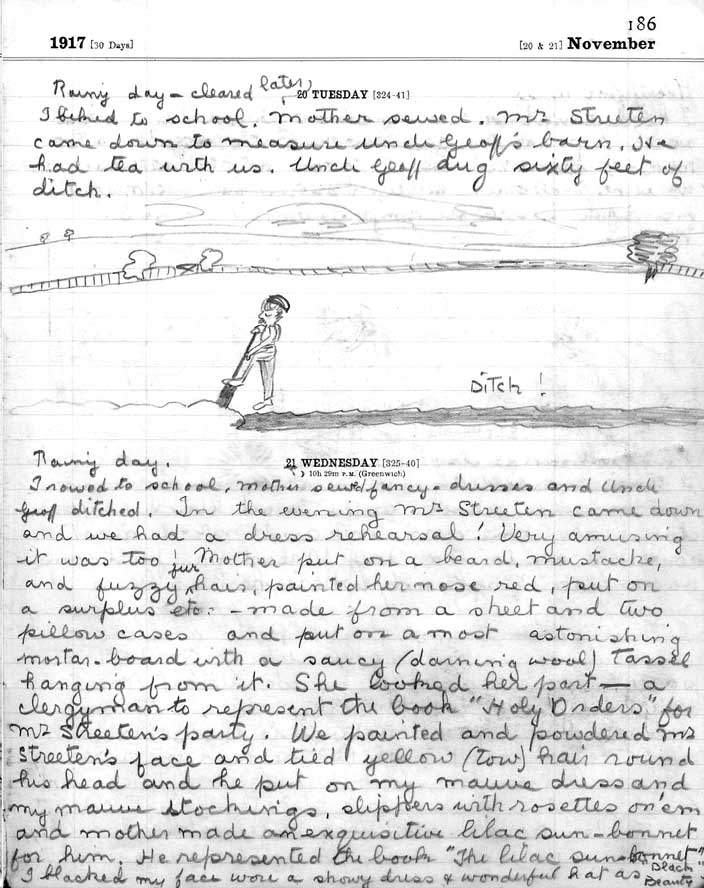 186
1917 [30 Days] [20 & 21] November
Rainy day – cleared later,
20 TUESDAY [324-41]
I biked to school. Mother sewed. Mr Streeten
came down to measure Uncle Geoff's barn. He
had tea with us. Uncle Geoff dug sixty feet of
ditch.
Ditch!
Rainy day.
21 WEDNESDAY [325-40]
☽ 10h 29m P.M. (Greenwich)
I rowed to school, Mother sewed fancy-dresses and Uncle
Geoff ditched. In the evening Mr Streeten came down
and we had a dress rehearsal! Very amusing
it was too! Mother put on a beard, mustache,
and fuzzy fur hair, painted her nose red, put on
a surplus etc: – made from a sheet and two
pillow cases and put on a most astonishing
mortar-board with a saucy (darning wool) Tassel
hanging from it. She looked her part — a
clergyman to represent the book "Holy Orders" for
Mr Streeten's party. We painted and powdered Mr
Streeten's face and tied yellow (tow) hair round
his head and he put on my mauve dress and
my mauve stockings, slippers with rosettes on 'em
and mother made an exquisitive lilac sun-bonnet
for him. He represented the book "The lilac sun-bonnet"
I blacked my face wore a showy dress & wonderful hat as "Black
Beauty"